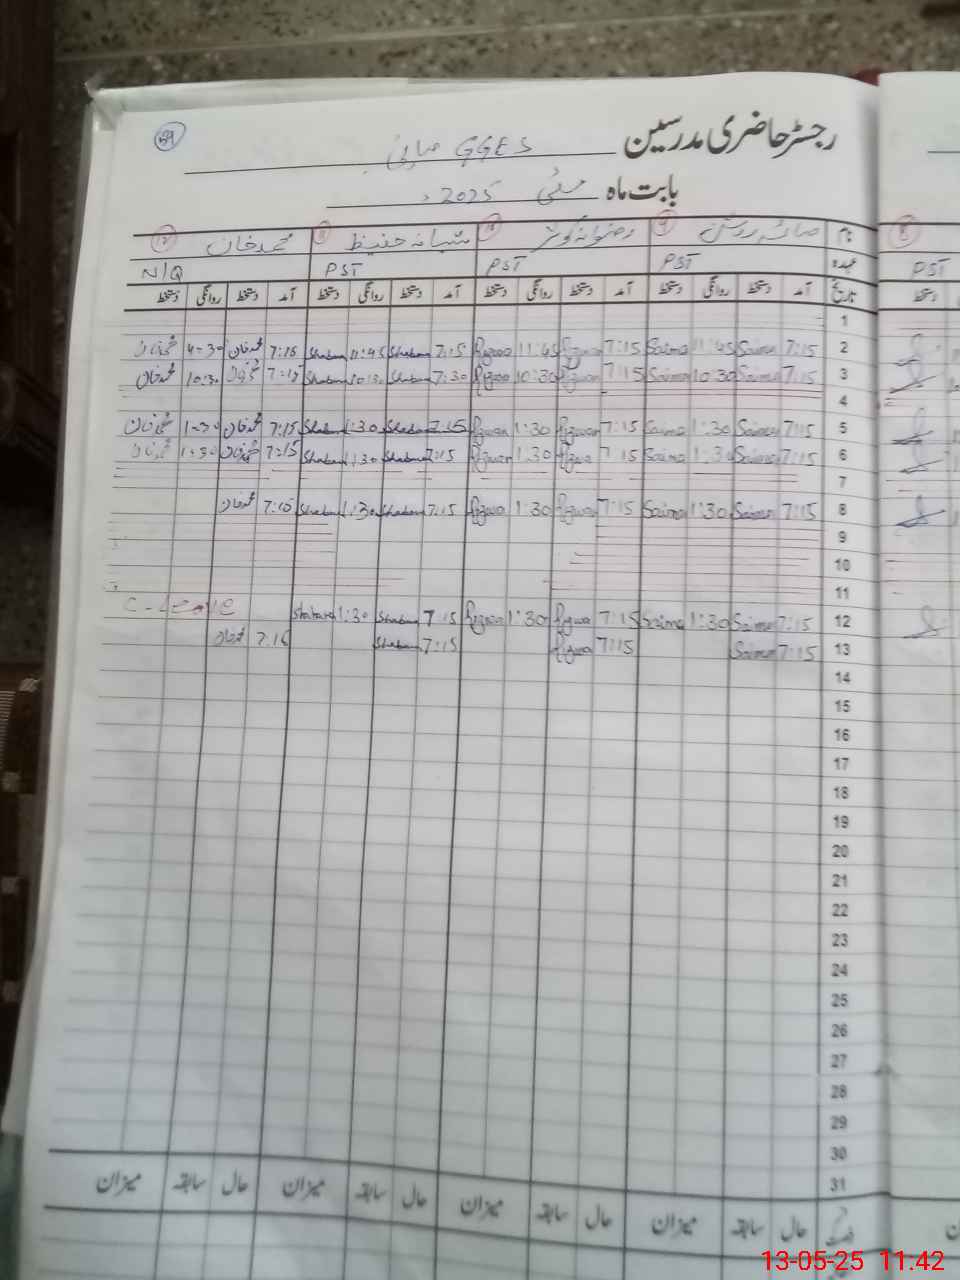 59
رجسٹر حاضری مدرسین GGES
بابت ماہ مئی 2025ء
نام 9 صائمہ 10 رضوانہ کوثر 11 شبانہ حفیظ 12 محمد خان 8
عہدہ PST PST PST N/Q PST
تاریخ آمد دستخط روانگی دستخط آمد دستخط روانگی دستخط آمد دستخط روانگی دستخط آمد دستخط روانگی دستخط دستخط
1
2 7:15 Saima 11:45 Saima 7:15 Rizwa 11:45 Rizwa 7:15 Shaban 11:45 Shaban 7:15 محمد خان 4-30 محمد خان
3 7:15 Saima 10:30 Saima 7:15 Rizwa 10:30 Rizwa 7:30 Shaban 10:30 Shaban 7:15 محمد خان 10:30 محمد خان
4
5 7:15 Saima 1:30 Saima 7:15 Rizwan 1:30 Rizwan 7:15 Shaban 1:30 Shaban 7:15 محمد خان 1-30 محمد خان
6 7:15 Saima 1:30 Saima 7:15 Rizwa 1:30 Rizwan 7:15 Shaban 1:30 Shaban 7:15 محمد خان 1-30 محمد خان
7
8 7:15 Saima 1:30 Saima 7:15 Rizwa 1:30 Rizwa 7:15 Shaban 1:30 Shaban 7:15 محمد خان
9
10
11
12 7:15 Saima 1:30 Saima 7:15 Rizwa 1:30 Rizwa 7:15 Shaban 1:30 Shabana C-Leave
13 7:15 Saima 7:15 Rizwa 7:15 Shaban 7.15 محمد خان
14
15
16
17
18
19
20
21
22
23
24
25
26
27
28
29
30
31
حال سابقہ میزان حال سابقہ میزان حال سابقہ میزان حال سابقہ میزان
13-05-25 11.42